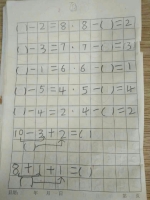 ( )-2=8 · 8-( )=2
( )-3=7 · 7-( )=3
( )-1=6 6-( )=1
( )-5=4 · 5-( )=4
( )-4=2 · 4-( )=2
10-3+2=( )
( )
8+1+ =( )
( )